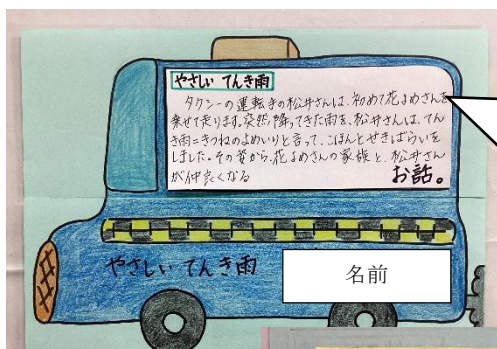 やさしい てんき雨
タクシーの運転手の松井さんは、初めて花よめさんを
乗せて走ります。突然降ってきた雨を、松井さんは、てん
き雨＝きつねのよめいりと言って、ごほんとせきばらいを
しました。その事から、花よめさんの家族と、松井さん
が仲良くなる
お話。
やさしい てんき雨
名前